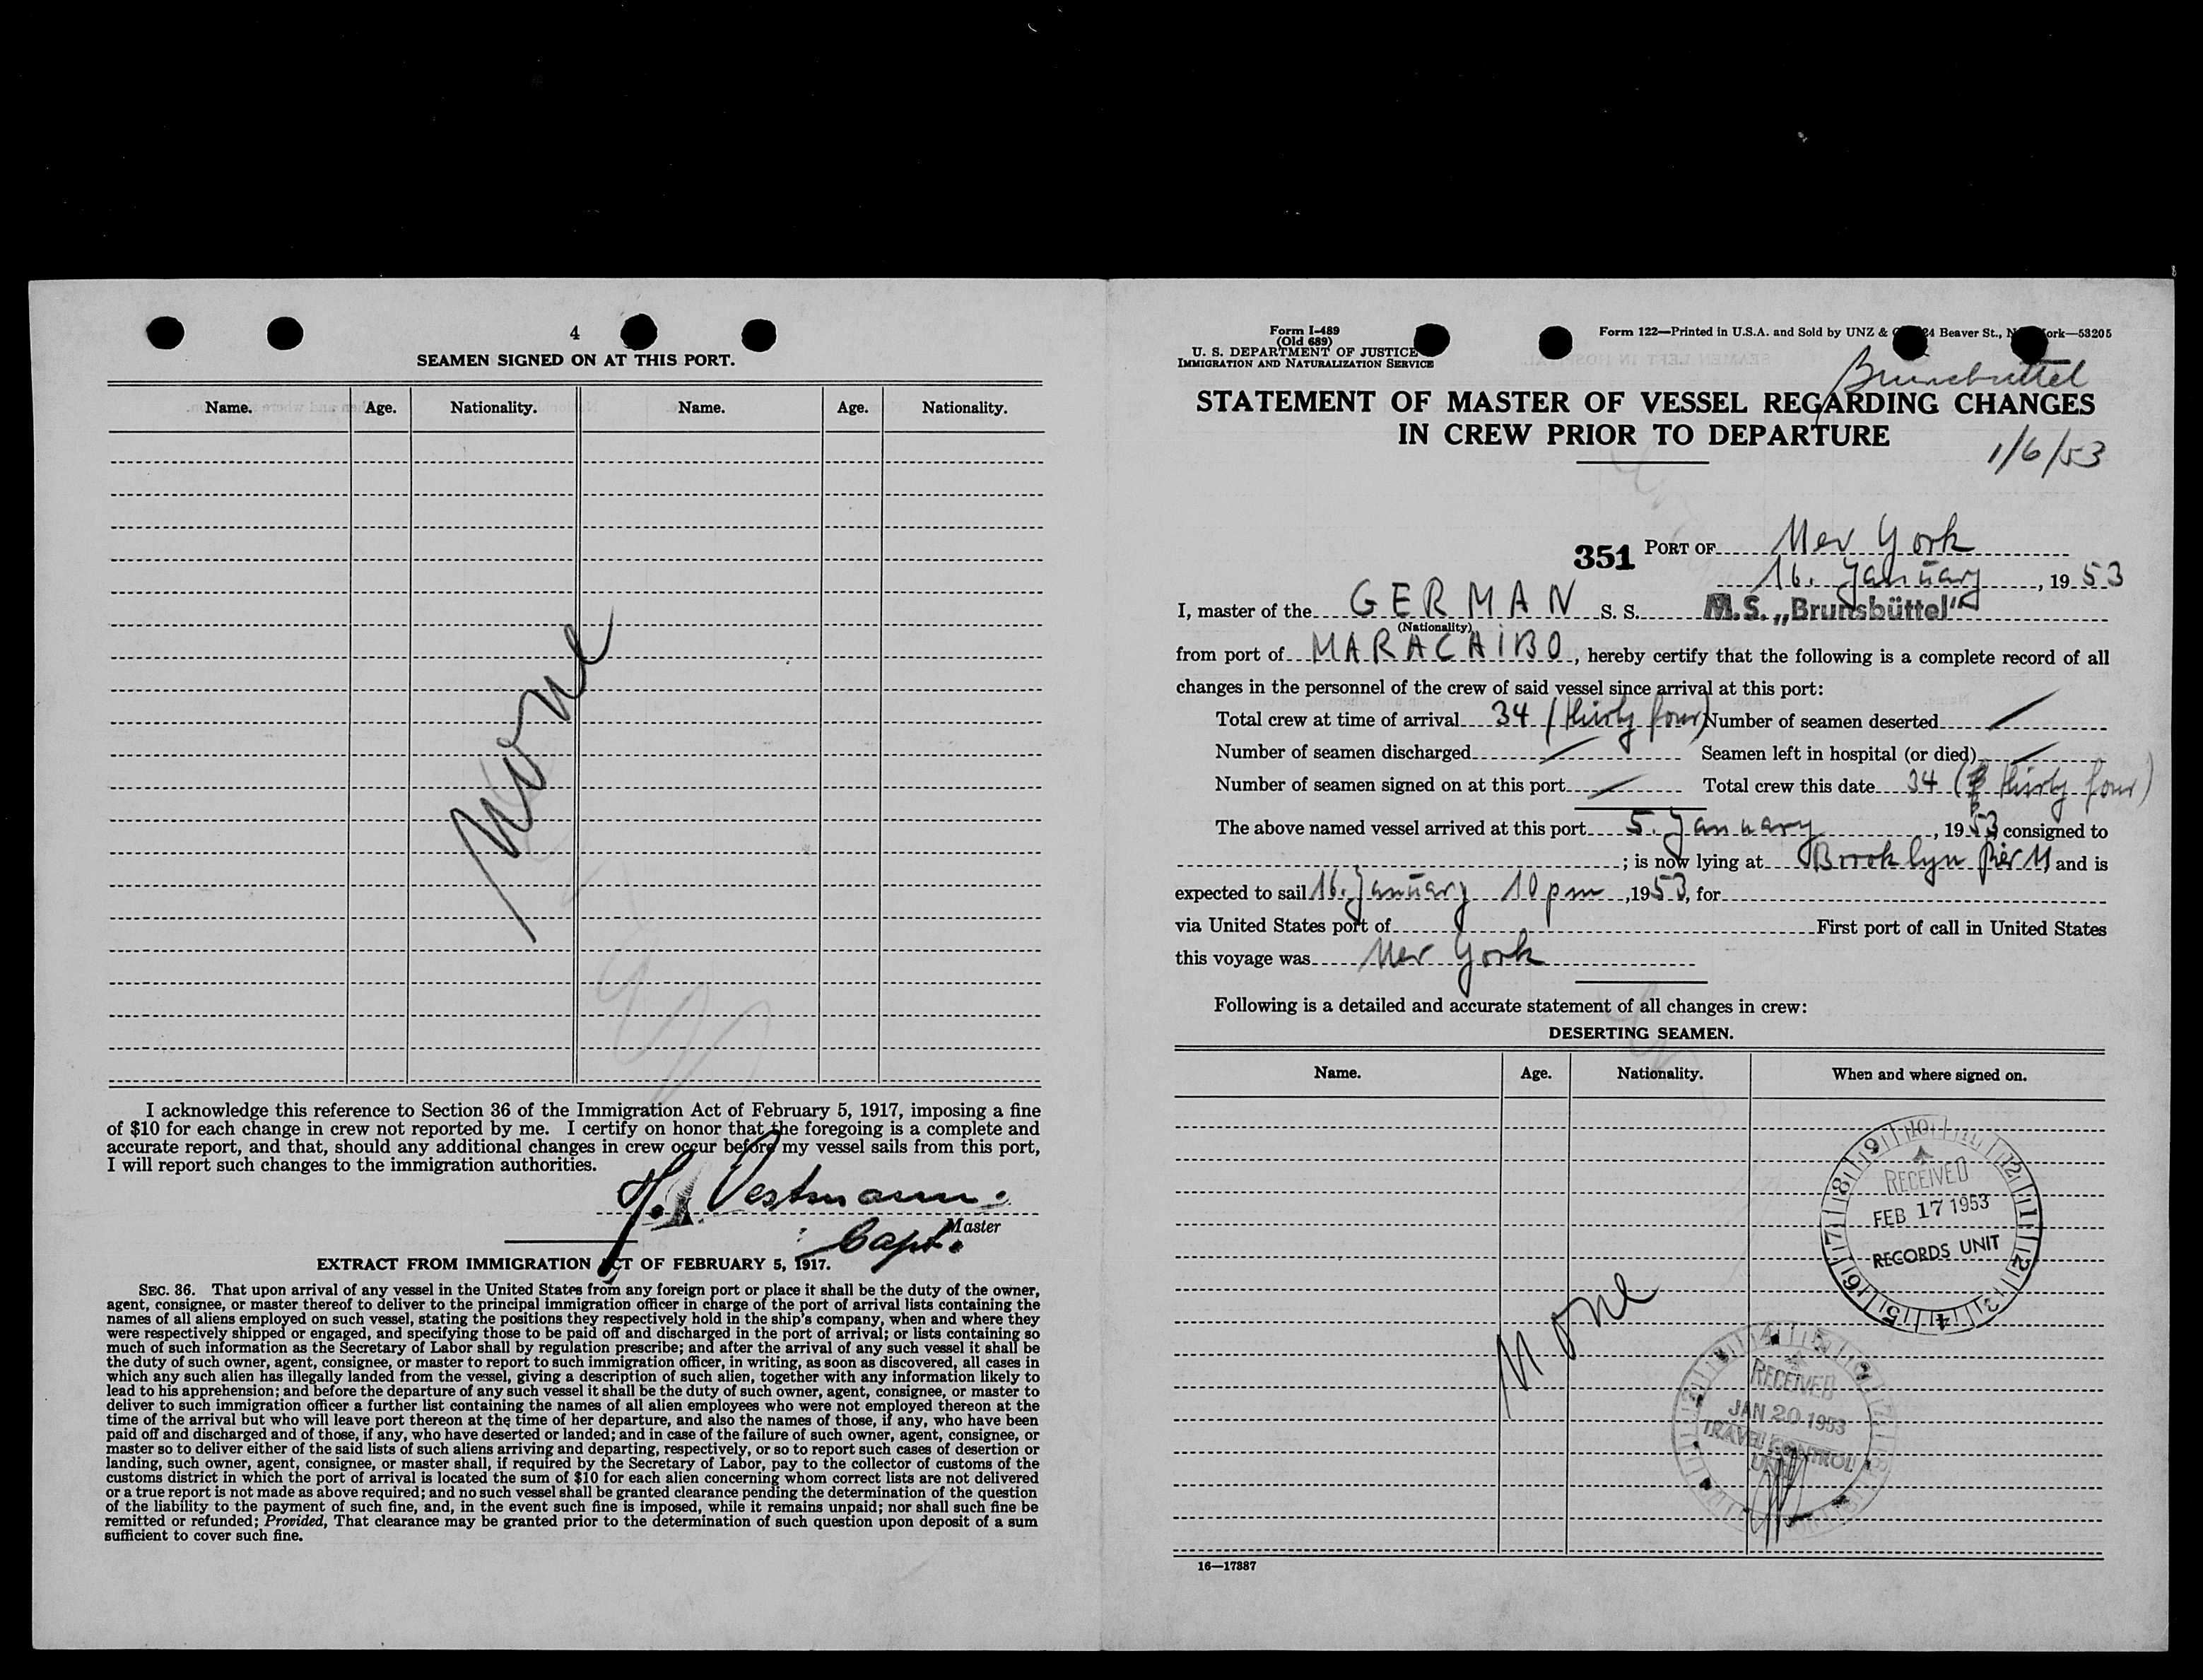 4
SEAMEN SIGNED ON AT THIS PORT.
Name. Age. Nationality. Name. Age. Nationality.
None
I acknowledge this reference to Section 36 of the Immigration Act of February 5, 1917, imposing a fine
of $10 for each change in crew not reported by me. I certify on honor that the foregoing is a complete and
accurate report, and that, should any additional changes in crew occur before my vessel sails from this port,
I will report such changes to the immigration authorities.
H. Vestmann.
Master
Capt.
EXTRACT FROM IMMIGRATION ACT OF FEBRUARY 5, 1917.
SEC. 36. That upon arrival of any vessel in the United States from any foreign port or place it shall be the duty of the owner,
agent, consignee, or master thereof to deliver to the principal immigration officer in charge of the port of arrival lists containing the
names of all aliens employed on such vessel, stating the positions they respectively hold in the ship's company, when and where they
were respectively shipped or engaged, and specifying those to be paid off and discharged in the port of arrival; or lists containing so
much of such information as the Secretary of Labor shall by regulation prescribe; and after the arrival of any such vessel it shall be
the duty of such owner, agent, consignee, or master to report to such immigration officer, in writing, as soon as discovered, all cases in
which any such alien has illegally landed from the vessel, giving a description of such alien, together with any information likely to
lead to his apprehension; and before the departure of any such vessel it shall be the duty of such owner, agent, consignee, or master to
deliver to such immigration officer a further list containing the names of all alien employees who were not employed thereon at the
time of the arrival but who will leave port thereon at the time of her departure, and also the names of those, if any, who have been
paid off and discharged and of those, if any, who have deserted or landed; and in case of the failure of such owner, agent, consignee, or
master so to deliver either of the said lists of such aliens arriving and departing, respectively, or so to report such cases of desertion or
landing, such owner, agent, consignee, or master shall, if required by the Secretary of Labor, pay to the collector of customs of the
customs district in which the port of arrival is located the sum of $10 for each alien concerning whom correct lists are not delivered
or a true report is not made as above required; and no such vessel shall be granted clearance pending the determination of the question
of the liability to the payment of such fine, and, in the event such fine is imposed, while it remains unpaid; nor shall such fine be
remitted or refunded; Provided, That clearance may be granted prior to the determination of such question upon deposit of a sum
sufficient to cover such fine.
Form I-489
(Old 689)
U. S. DEPARTMENT OF JUSTICE
IMMIGRATION AND NATURALIZATION SERVICE
Form 122—Printed in U.S.A. and Sold by UNZ & 24 Beaver St., ork—53205
Brunsbuttel
STATEMENT OF MASTER OF VESSEL REGARDING CHANGES
IN CREW PRIOR TO DEPARTURE
1/6/53
351 PORT OF New York
16. January, 1953
I, master of the GERMAN S. S. M.S. „Brunsbüttel"
(Nationality)
from port of MARACAIBO, hereby certify that the following is a complete record of all
changes in the personnel of the crew of said vessel since arrival at this port:
Total crew at time of arrival 34 (thirty four) Number of seamen deserted /
Number of seamen discharged / Seamen left in hospital (or died) /
Number of seamen signed on at this port / Total crew this date 34 (thirty four)
The above named vessel arrived at this port 5. January, 1953 consigned to
; is now lying at Brooklyn Pier 11 and is
expected to sail 16. January 10 pm, 1953, for
via United States port of First port of call in United States
this voyage was New York
Following is a detailed and accurate statement of all changes in crew:
DESERTING SEAMEN.
Name. Age. Nationality. When and where signed on.
9 10 11 12 1 2 3 4 5 6 7 8
RECEIVED
FEB 17 1953
RECORDS UNIT
None
RECEIVED
JAN 20 1953
TRAVEL CONTROL
UNIT
16—17887